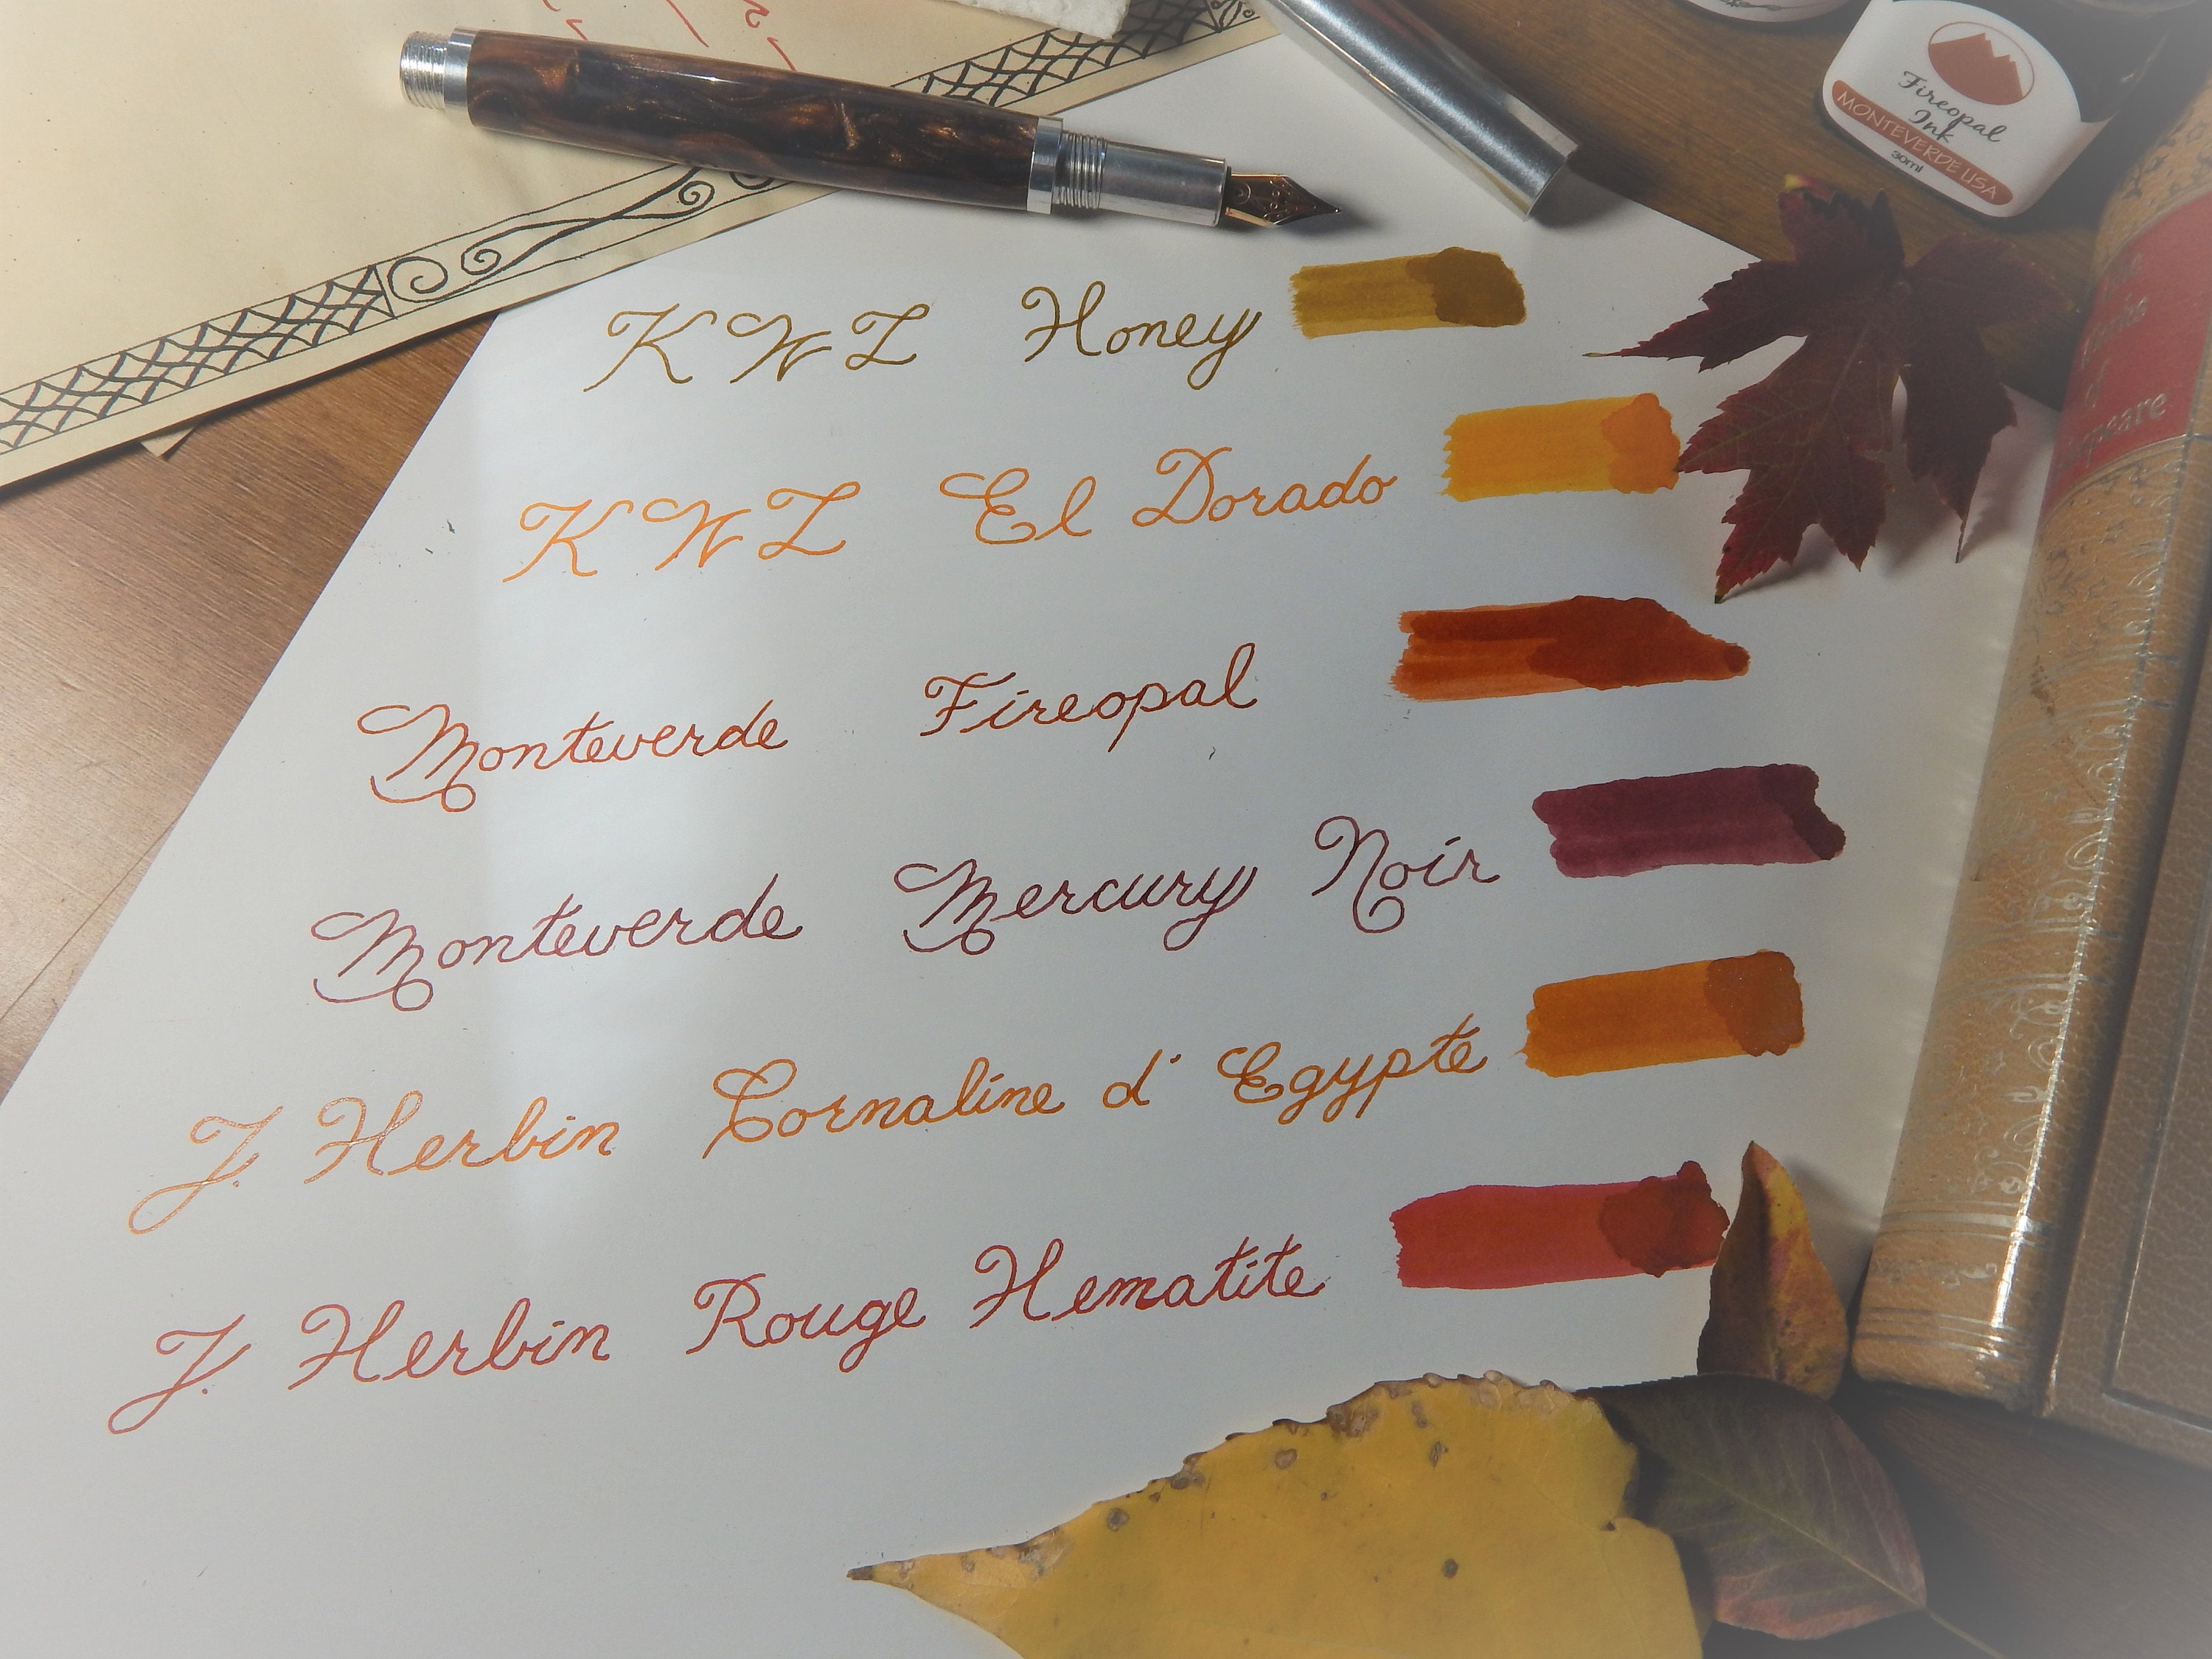 Fireopal
Ink
MONTEVERDE USA
30ml
KWZ Honey
KWZ El Dorado
Monteverde Fireopal
Monteverde Mercury Noir
J. Herbin Cornaline d'Egypte
J. Herbin Rouge Hematite
of